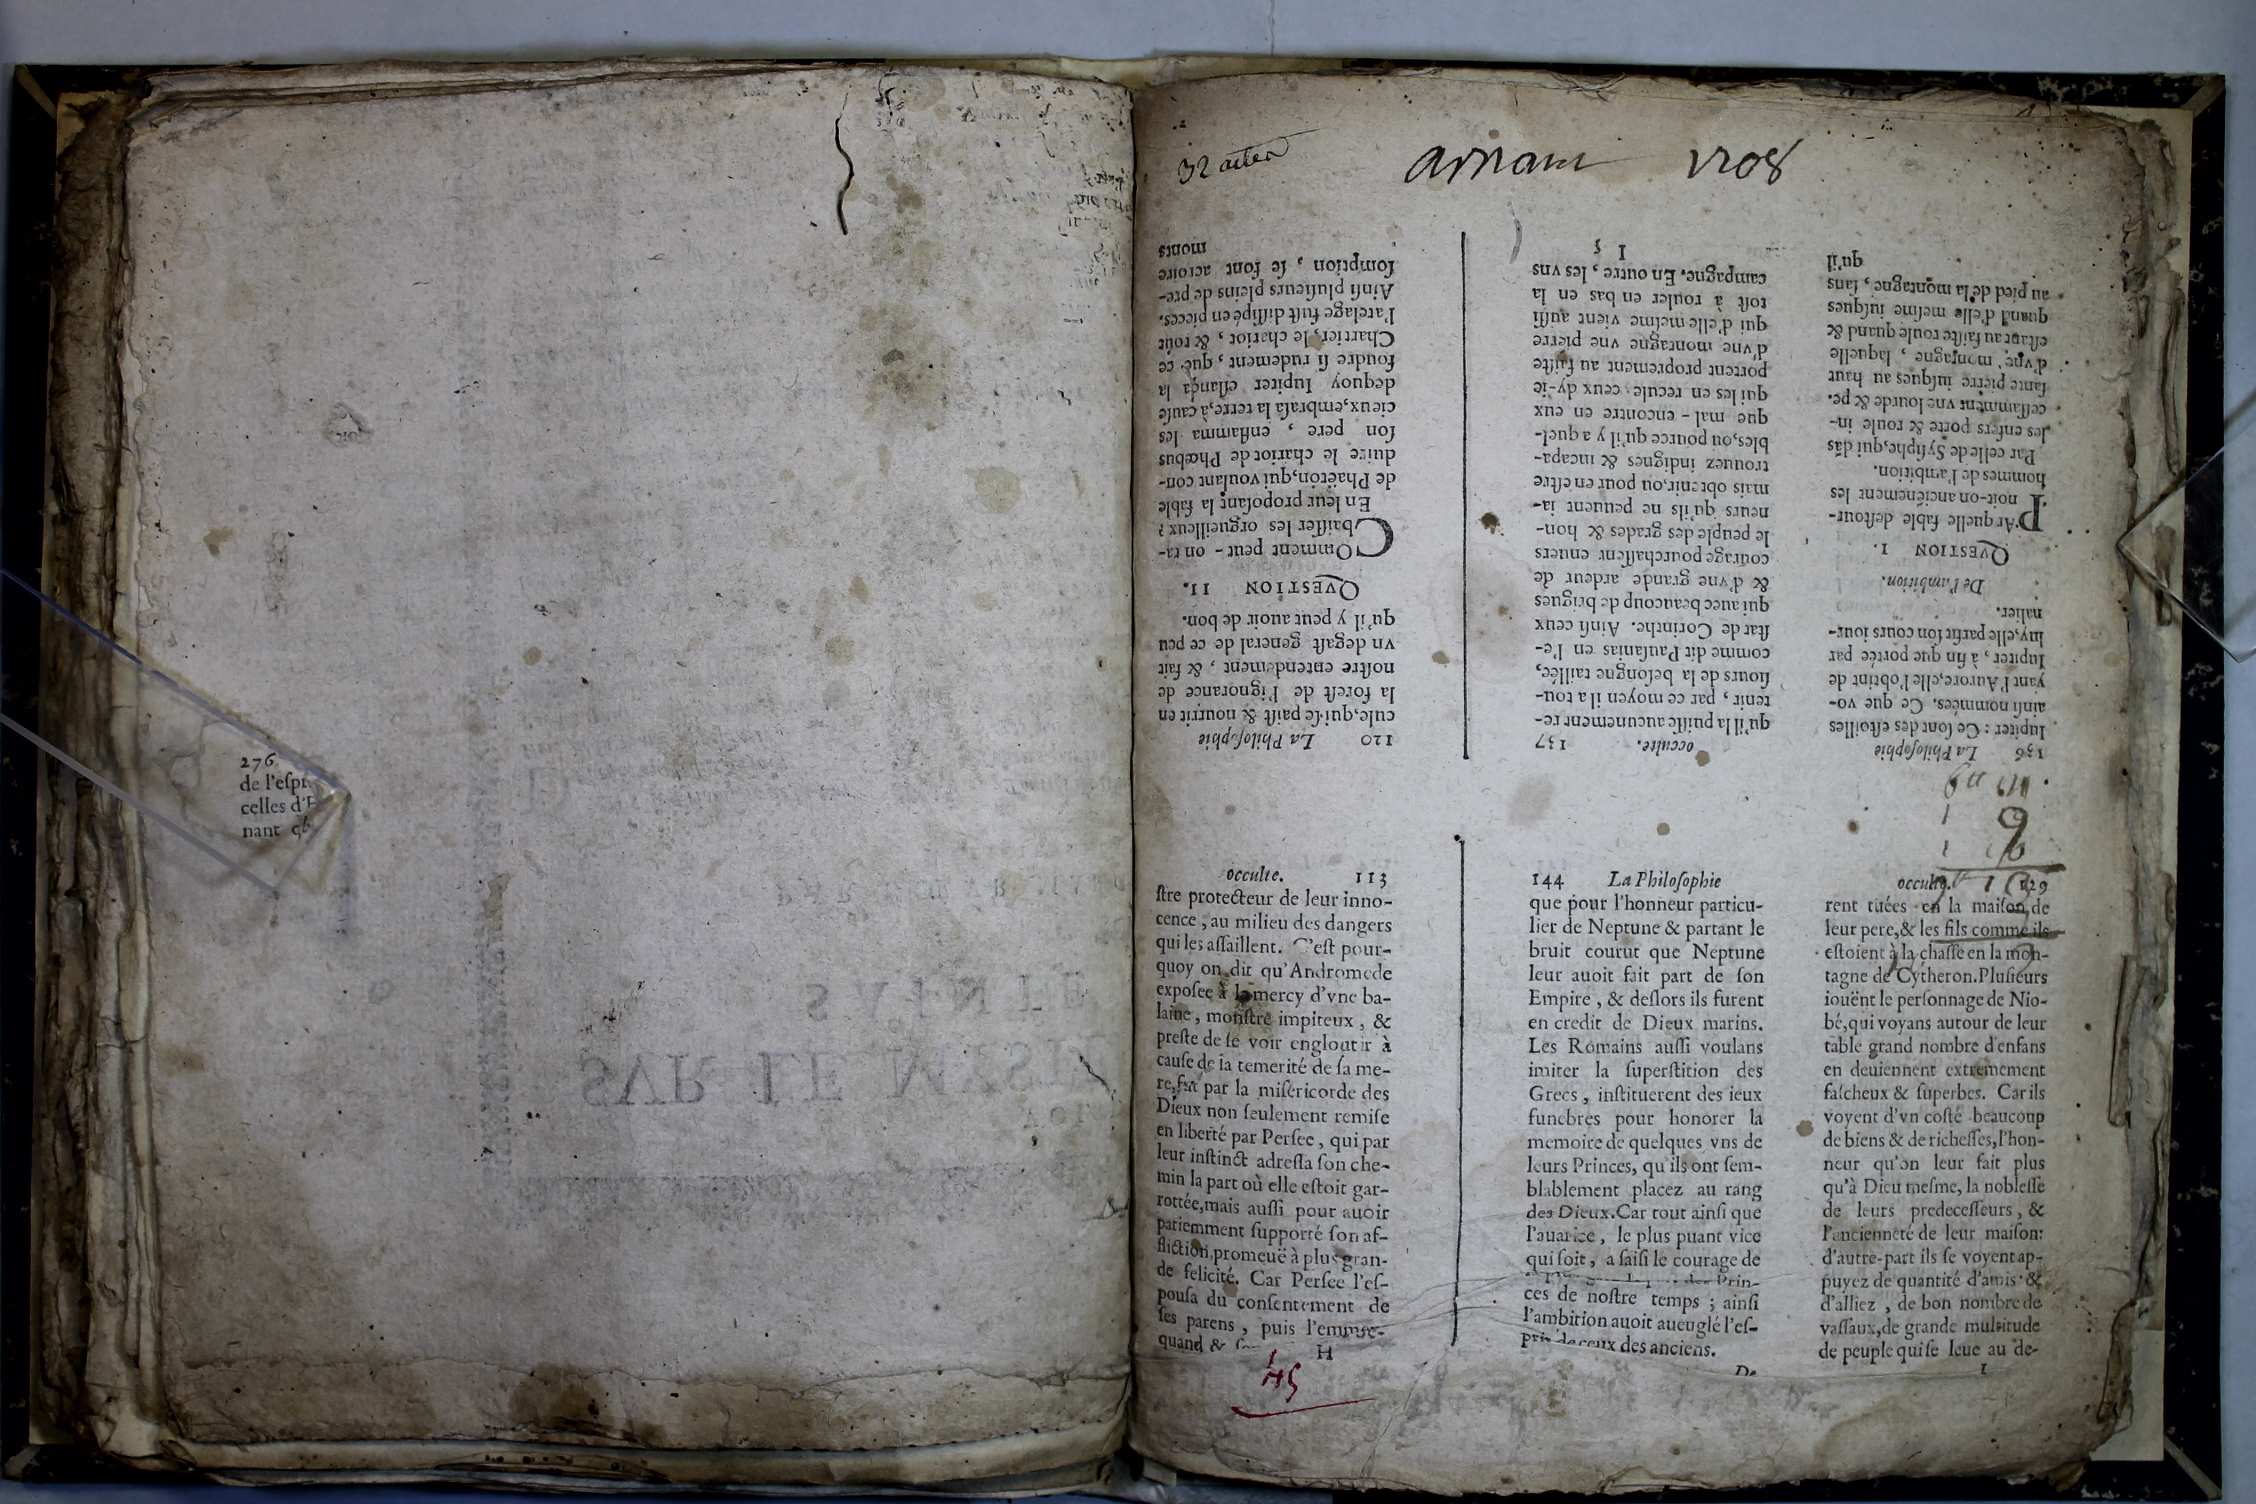 276
de l'espr
celles d'E
nant
32 actes
arnam 1708
120 La Philosophie
cule, qui se paist & nourrit en
la forest de l'ignorance de
nostre entendement, & fait
vn degast general de ce peu
qu'il y peut auoir de bon.
QVESTION II.
COmment peut-on ra-
baisser les orgueilleux?
En leur proposant la fable
de Phaëton, qui voulant con-
duire le chariot de Phœbus
son pere, enflamma les
cieux, embrasa la terre, à cause
dequoy Iupiter eslança la
foudre si rudement, que ce
Chartier, le chariot, & tout
l'atelage fust dissipé en pieces.
Ainsi plusieurs pleins de pre-
somption, se font acroire
monts
occulte. 137
qu'il la puisse aucunement re-
tenir, par ce moyen il a tou-
siours de la besongne taillée,
comme dit Pausanias en l'e-
stat de Corinthe. Ainsi ceux
qui auec beaucoup de brigues
& d'vne grande ardeur de
courage pourchassent enuers
le peuple des grades & hon-
neurs qu'ils ne peuuent ia-
mais obtenir, ou pour en estre
trouuez indignes & incapa-
bles, ou pource qu'il y a quel-
que mal-encontre en eux
qui les en recule: ceux dy-ie
portent proprement au faiste
d'vne montagne vne pierre
qui d'elle mesme vient aussi
tost à rouler en bas en la
campagne. En outre, les vns
I 5
136 La Philosophie
Iupiter: Ce sont des estoilles
ainsi nommées. Ce que vo-
yant l'Aurore, elle l'obtint de
Iupiter, à fin que portée par
luy, elle parfist son cours iour-
nalier.
De l'ambition.
QVESTION I.
PAr quelle fable destour-
noit-on anciénement les
hommes de l'ambition.
Par celle de Sysiphe, qui dãs
les enfers porte & roule in-
cessamment vne lourde & pe-
sante pierre iusques au haut
d'vne montagne, laquelle
estant au faiste roule quand &
quand d'elle mesme iusques
au pied de la montagne, sans
qu'il
occulte. 113
stre protecteur de leur inno-
cence, au milieu des dangers
qui les assaillent. C'est pour-
quoy on dit qu'Andromede
exposee à la mercy d'vne ba-
laine, monstre impiteux, &
preste de se voir engloutir à
cause de la temerité de sa me-
re, fut par la misericorde des
Dieux non seulement remise
en liberté par Persee, qui par
leur instinct adressa son che-
min la part où elle estoit gar-
rottée, mais aussi pour auoir
patiemment supporté son af-
fliction, promeuë à plus gran-
de felicité. Car Persee l'es-
pousa du consentement de
ses parens, puis l'emme-
quand &
H
45
144 La Philosophie
que pour l'honneur particu-
lier de Neptune & partant le
bruit courut que Neptune
leur auoit fait part de son
Empire, & deslors ils furent
en credit de Dieux marins.
Les Romains aussi voulans
imiter la superstition des
Grecs, instituerent des ieux
funebres pour honorer la
memoire de quelques vns de
leurs Princes, qu'ils ont sem-
blablement placez au rang
des Dieux. Car tout ainsi que
l'auarice, le plus puant vice
qui soit, a saisi le courage de
Prin-
ces de nostre temps; ainsi
l'ambition auoit aueuglé l'es-
prit de ceux des anciens.
De
occulte. 129
rent tuées en la maison de
leur pere, & les fils comme ils
estoient à la chasse en la mon-
tagne de Cytheron. Plusieurs
iouënt le personnage de Nio-
bé, qui voyans autour de leur
table grand nombre d'enfans
en deuiennent extremement
fascheux & superbes. Car ils
voyent d'vn costé beaucoup
de biens & de richesses, l'hon-
neur qu'on leur fait plus
qu'à Dieu mesme, la noblesse
de leurs predecesseurs, &
l'ancienneté de leur maison:
d'autre-part ils se voyent ap-
puyez de quantité d'amis &
d'alliez, de bon nombre de
vassaux, de grande multitude
de peuple qui se leue au de-
I